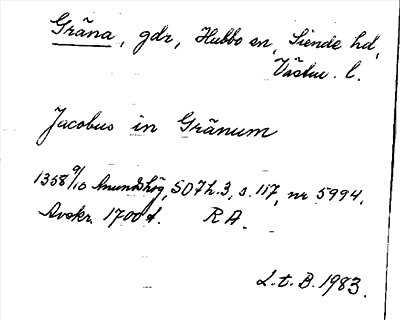 Gräna, gdr, Hubbo sn, Siende hd,
Västm. l.
Jacobus in Gränum
1358 9/10 Anundshög, SD 7 h. 3, s. 117, nr 5994.
Avskr. 1700 t. RA.
L. t. B. 1983.